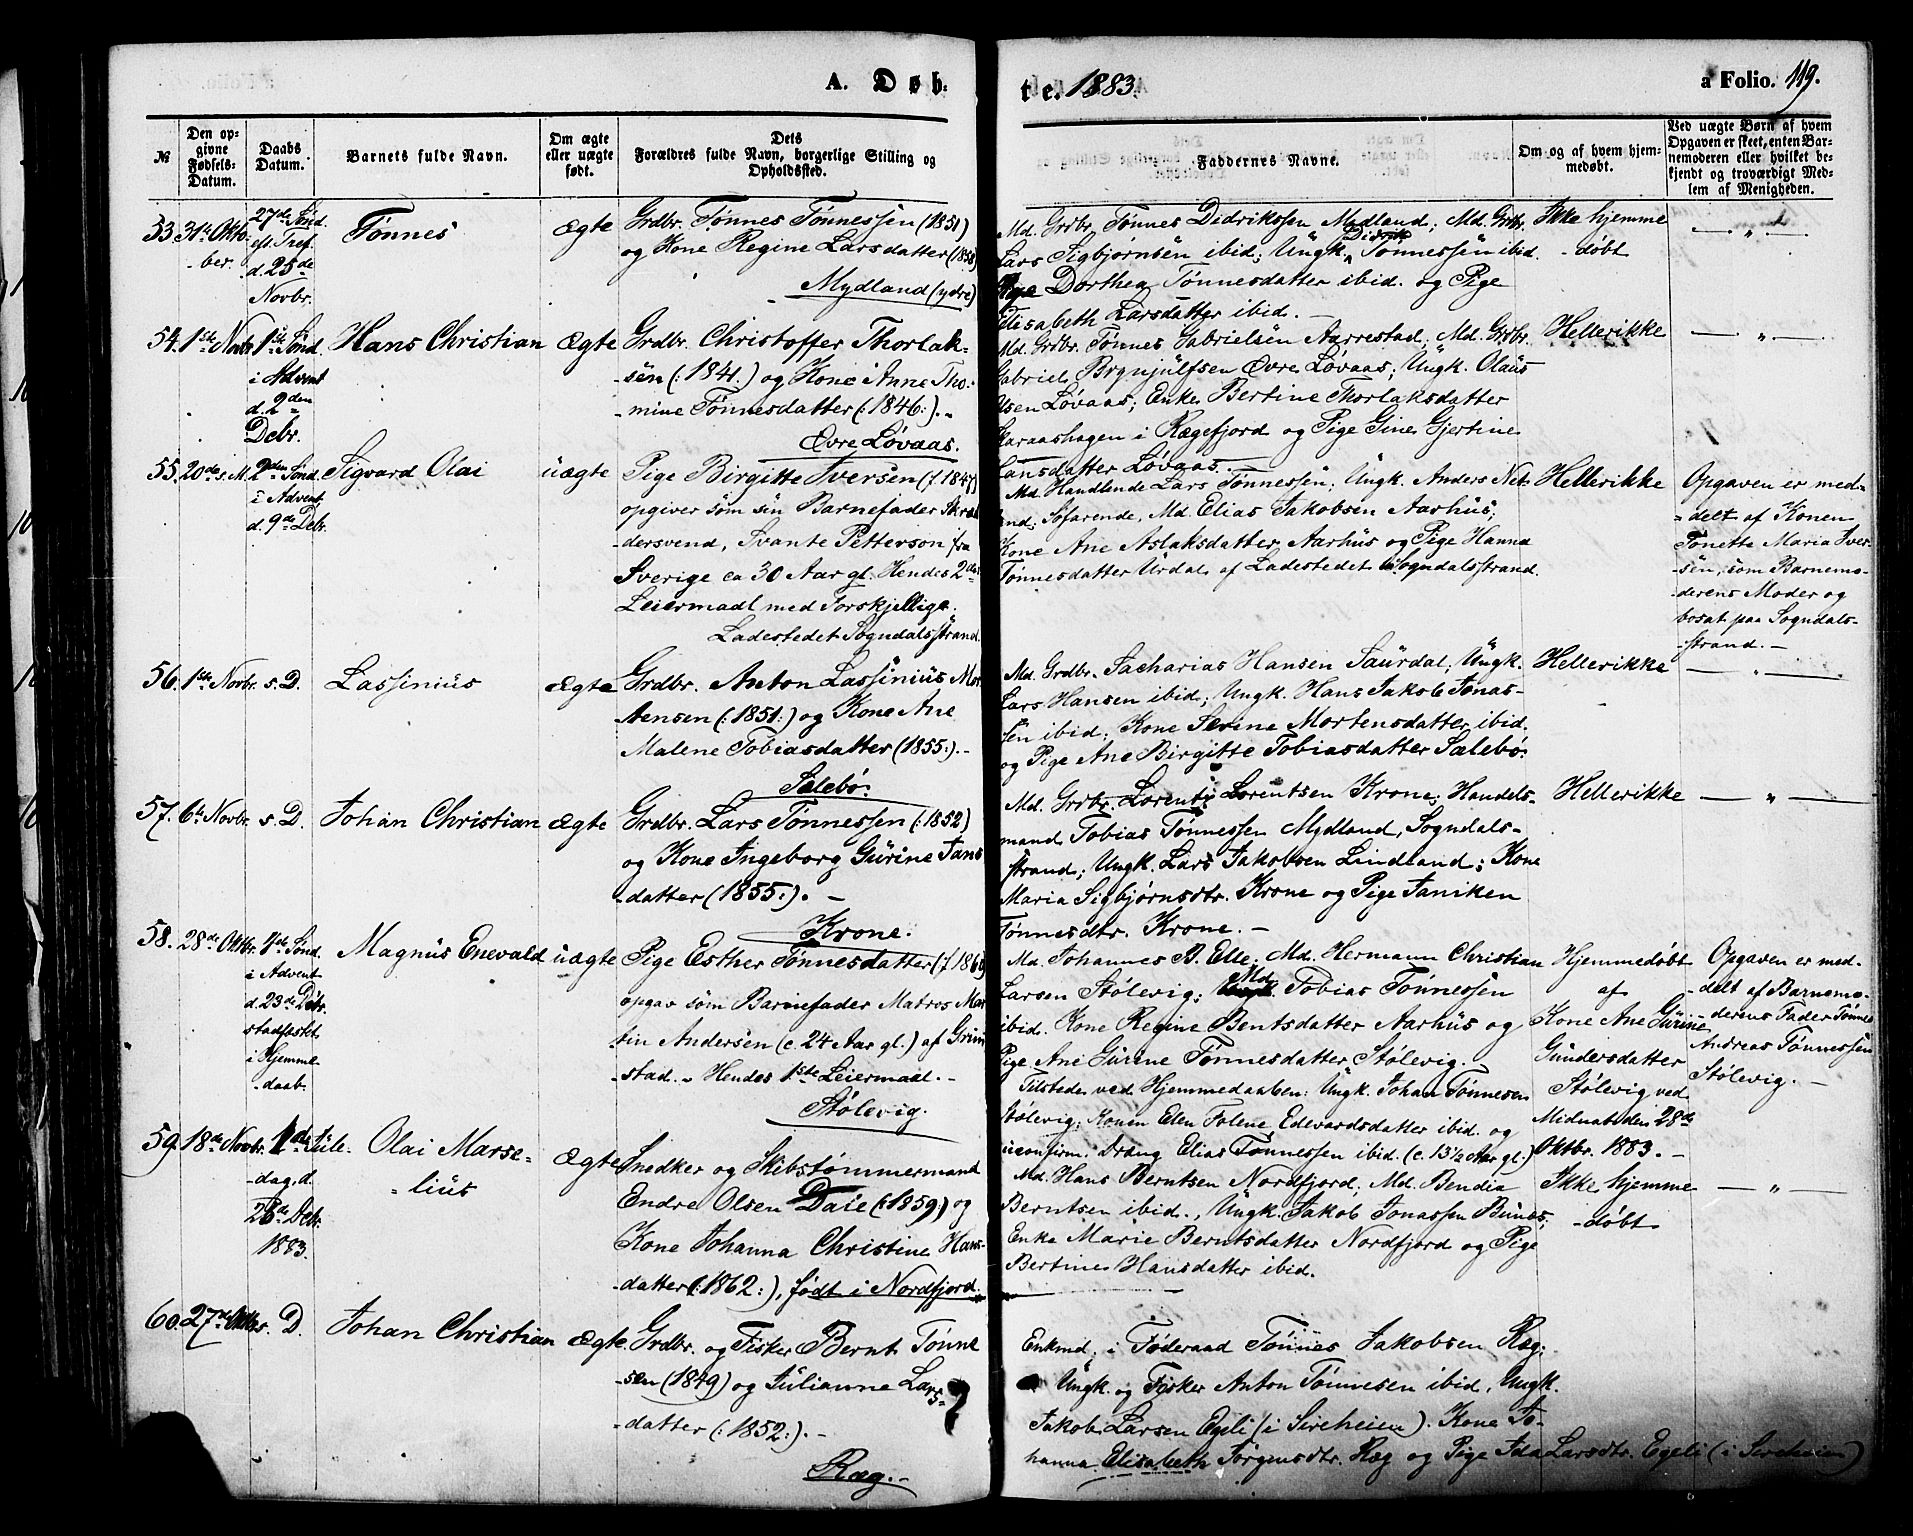 A. Døb-
te. 1883.
a Folio. 119.
№
Den op-
givne
Fødsels-
Datum.
Daabs
Datum.
Barnets fulde Navn.
Om ægte
eller uægte
født.
Dets
Forældres fulde Navn, borgerlige Stilling og
Opholdssted.
Faddernes Navne.
Om og af hvem hjem-
medøbt.
Ved uægte Børn af hvem
Opgaven er skeet, enten Bar-
nemoderen eller hvilket be-
kjendt og troværdigt Med-
lem af Menigheden.
53 31te Okto-
ber.
27de Sønd.
eft. Tref.
d. 25de
Novbr.
Tønnes
ægte
Grdbr. Tønnes Tønnessen (1851)
og Kone Regine Larsdatter (1858)
Mydland (ydre)
Md. Grdbr. Tønnes Didriksen Mydland; Md. Grdbr.
Lars Sigbjørnsen ibid; Ungk. Didrik Tønnessen ibid.
Pige Dorthea Tønnesdatter ibid. og Pige
Elisabeth Larsdatter ibid. —
Ikke hjemme
-døbt
— „ —
54. 1ste Novbr.
1ste Sønd.
i Advent
d. 2den
Debr.
Hans Christian
Ægte
Grdbr. Christoffer Thorlak-
-sen (: 1841.) og Kone Anne Tho-
-mine Tønnesdatter (: 1846:). -
Øvre Løvaas.
Md. Grdbr. Tønnes Gabrielsen Aarrestad; Md. Grdbr.
Gabriel Brynjulfsen Øvre Løvaas; Ungk. Olaus
Olsen Løvaas; Enke Bertine Thorlaksdatter
i Rægefjord og Pige Gine Gjertine
Hansdatter Løvaas. -
Hellerikke
— „ —
55. 20de s. M.
2den Sønd.
i Advent,
d. 9de Debr.
Sigvard Olai
uægte
Pige Birgitte Iversen (f. 1847)
opgiver som sin Barnefader Skræ-
-dersvend, Svante Petterson fra
Sverige ca 30 Aar gl. Hendes 2det
Leiermaal med Forskjellige.
Ladestedet Sogndalsstrand.
Md. Handlende Lars Tønnessen; Ungk. Anders Net-
land; Søfarende, Md. Elias Jakobsen Aarhus;
Kone Ane Aslaksdatter Aarhus og Pige Hanna
Tønnesdatter Urdal af Ladestedet Sogndalsstrand.
Hellerikke
Opgaven er med-
-delt af Konen
Tonette Maria Iver-
-sen, som Barnemo-
-derens Moder og
bosat paa Sogndals-
-strand. -
56. 1ste Novbr.
s. D.
Lassinius
Ægte
Grdbr. Anton Lassinius Mor-
tensen (: 1851:) og Kone Ane
Malene Tobiasdatter (1855:). -
Salebø.
Md. Grdbr. Sacharias Hansen Saurdal; Ungk.
Lars Hansen ibid; Ungk. Hans Jakob Jonas-
sen ibid; Kone Serine Mortensdatter ibid.
og Pige Ane Birgitte Tobiasdatter Salebø.
Hellerikke
— „ —
57. 6te Novbr.
s. D.
Johan Christian
Ægte
Grdbr. Lars Tønnessen (: 1852)
og Kone Ingeborg Gurine Jans
-datter (1855:). —
Krone.
Md. Grdbr. Lorents Lorentsen Krone; Handels-
mand Tobias Tønnessen Mydland, Sogndals-
strand; Ungk. Lars Jakobsen Lindland; Kone
Maria Sigbjørnsdtr. Krone og Pige Janiken
Tønnesdtr. Krone. -
Hellerikke
— „ —
58. 28de Oktbr.
4de Sønd.
i Advent
d. 23de Debr.
stadfæstet
i Hjemme
-daab.
Magnus Enevald
uægte
Pige Esther Tønnesdatter (f. 1860)
opgav som Barnefader Matros Mar-
tin Andersen (c. 24 Aar gl.) af Grim
-stad. - Hendes 1ste Leiermaal. -
Stølevig.
Md. Johannes B. Elle; Md. Hermann Christian
Larsen Stølevig; Md. Tobias Tønnessen
ibid. Kone Regine Bentsdatter Aarhus og
Pige Ane Gurine Tønnesdatter Stølevig.
Tilstede ved Hjemmedaaben: Ungk. Johan Tønnesen
Stølevig; Konen Elen Tolene Edevardsdatter ibid. og
uconfirm. Dreng Elias Tønnessen ibid. (c. 13½ Aar gl.)
Hjemmedøbt
af
Kone Ane Gurine
Gundersdatter
Stølevig ved
Midnatstiden 28de
Oktbr. 1883. -
Opgaven er med-
-delt af Barnemo-
-derens Fader Tønnes
Andreas Tønnessen
Stølevig. -
59. 18de Novbr.
1ste Jule-
-dag, d.
25de Debr.
1883.
Olai Marse-
-lius
Ægte
Snedker og Skibstømmermand
Endre Olsen Daie (: 1859:) og
Kone Johanna Christine Hans-
datter (: 1862:), født i Nordfjord
Md. Hans Berntsen Nordfjord; Md. Bendix
Berntsen ibid., Ungk. Jakob Jonassen Bunes;
Enke Marie Berntsdatter Nordfjord og Pige
Bertine Hansdatter ibid.
Ikke hjemme
-døbt
— „ —
60. 27de Oktbr.
s. D.
Johan Christian
Ægte
Grdbr. og Fisker Bernt Tønne
-sen (1849) og Julianne Lars-
-datter (: 1852:). -
Ræg. -
Enkmd. i Føderaad Tønnes Jakobsen Ræg;
Ungk. og Fisker Anton Tønnesen ibid, Ungk.
Jakob Larsen Egeli (i Sireheien). Kone Jo-
hanna Elisabeth Jørgensdtr. Ræg og Pige Ida Larsdtr. Egeli (i Sireheien)